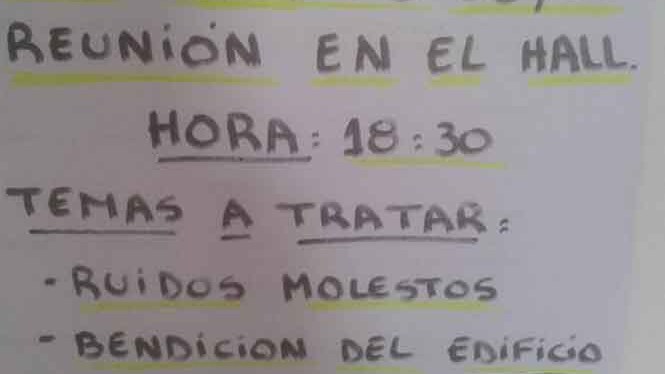 REUNIÓN EN EL HALL.
HORA: 18:30
TEMAS A TRATAR:
- RUIDOS MOLESTOS
- BENDICION DEL EDIFICIO